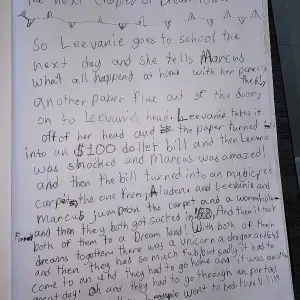 The next Chapter of Dream Town
So Leevanie goes to school the
next day and she tells Marcus
what all happend at home with her parents
then
another paper flue out of the doors
on to Leevanie's head. Leevanie takes it
off of her head and the paper turned
into an $100 doller bill and then Leevanie
was shocked and Marcus was amazed!
and then the bill turned into an magical
carpet the one from Aladen and Leevanie and
Marcus jump on the carpet and a wormhole
and then they both got sucked in and then it took
both of them to a Dream land! With both of their
dreams together there was a unicorn a dragon
and then they had so much fun but sadly it had to
come to an end they had to go home and it was another
great day. Oh and they had to go through an portal
went to bed.